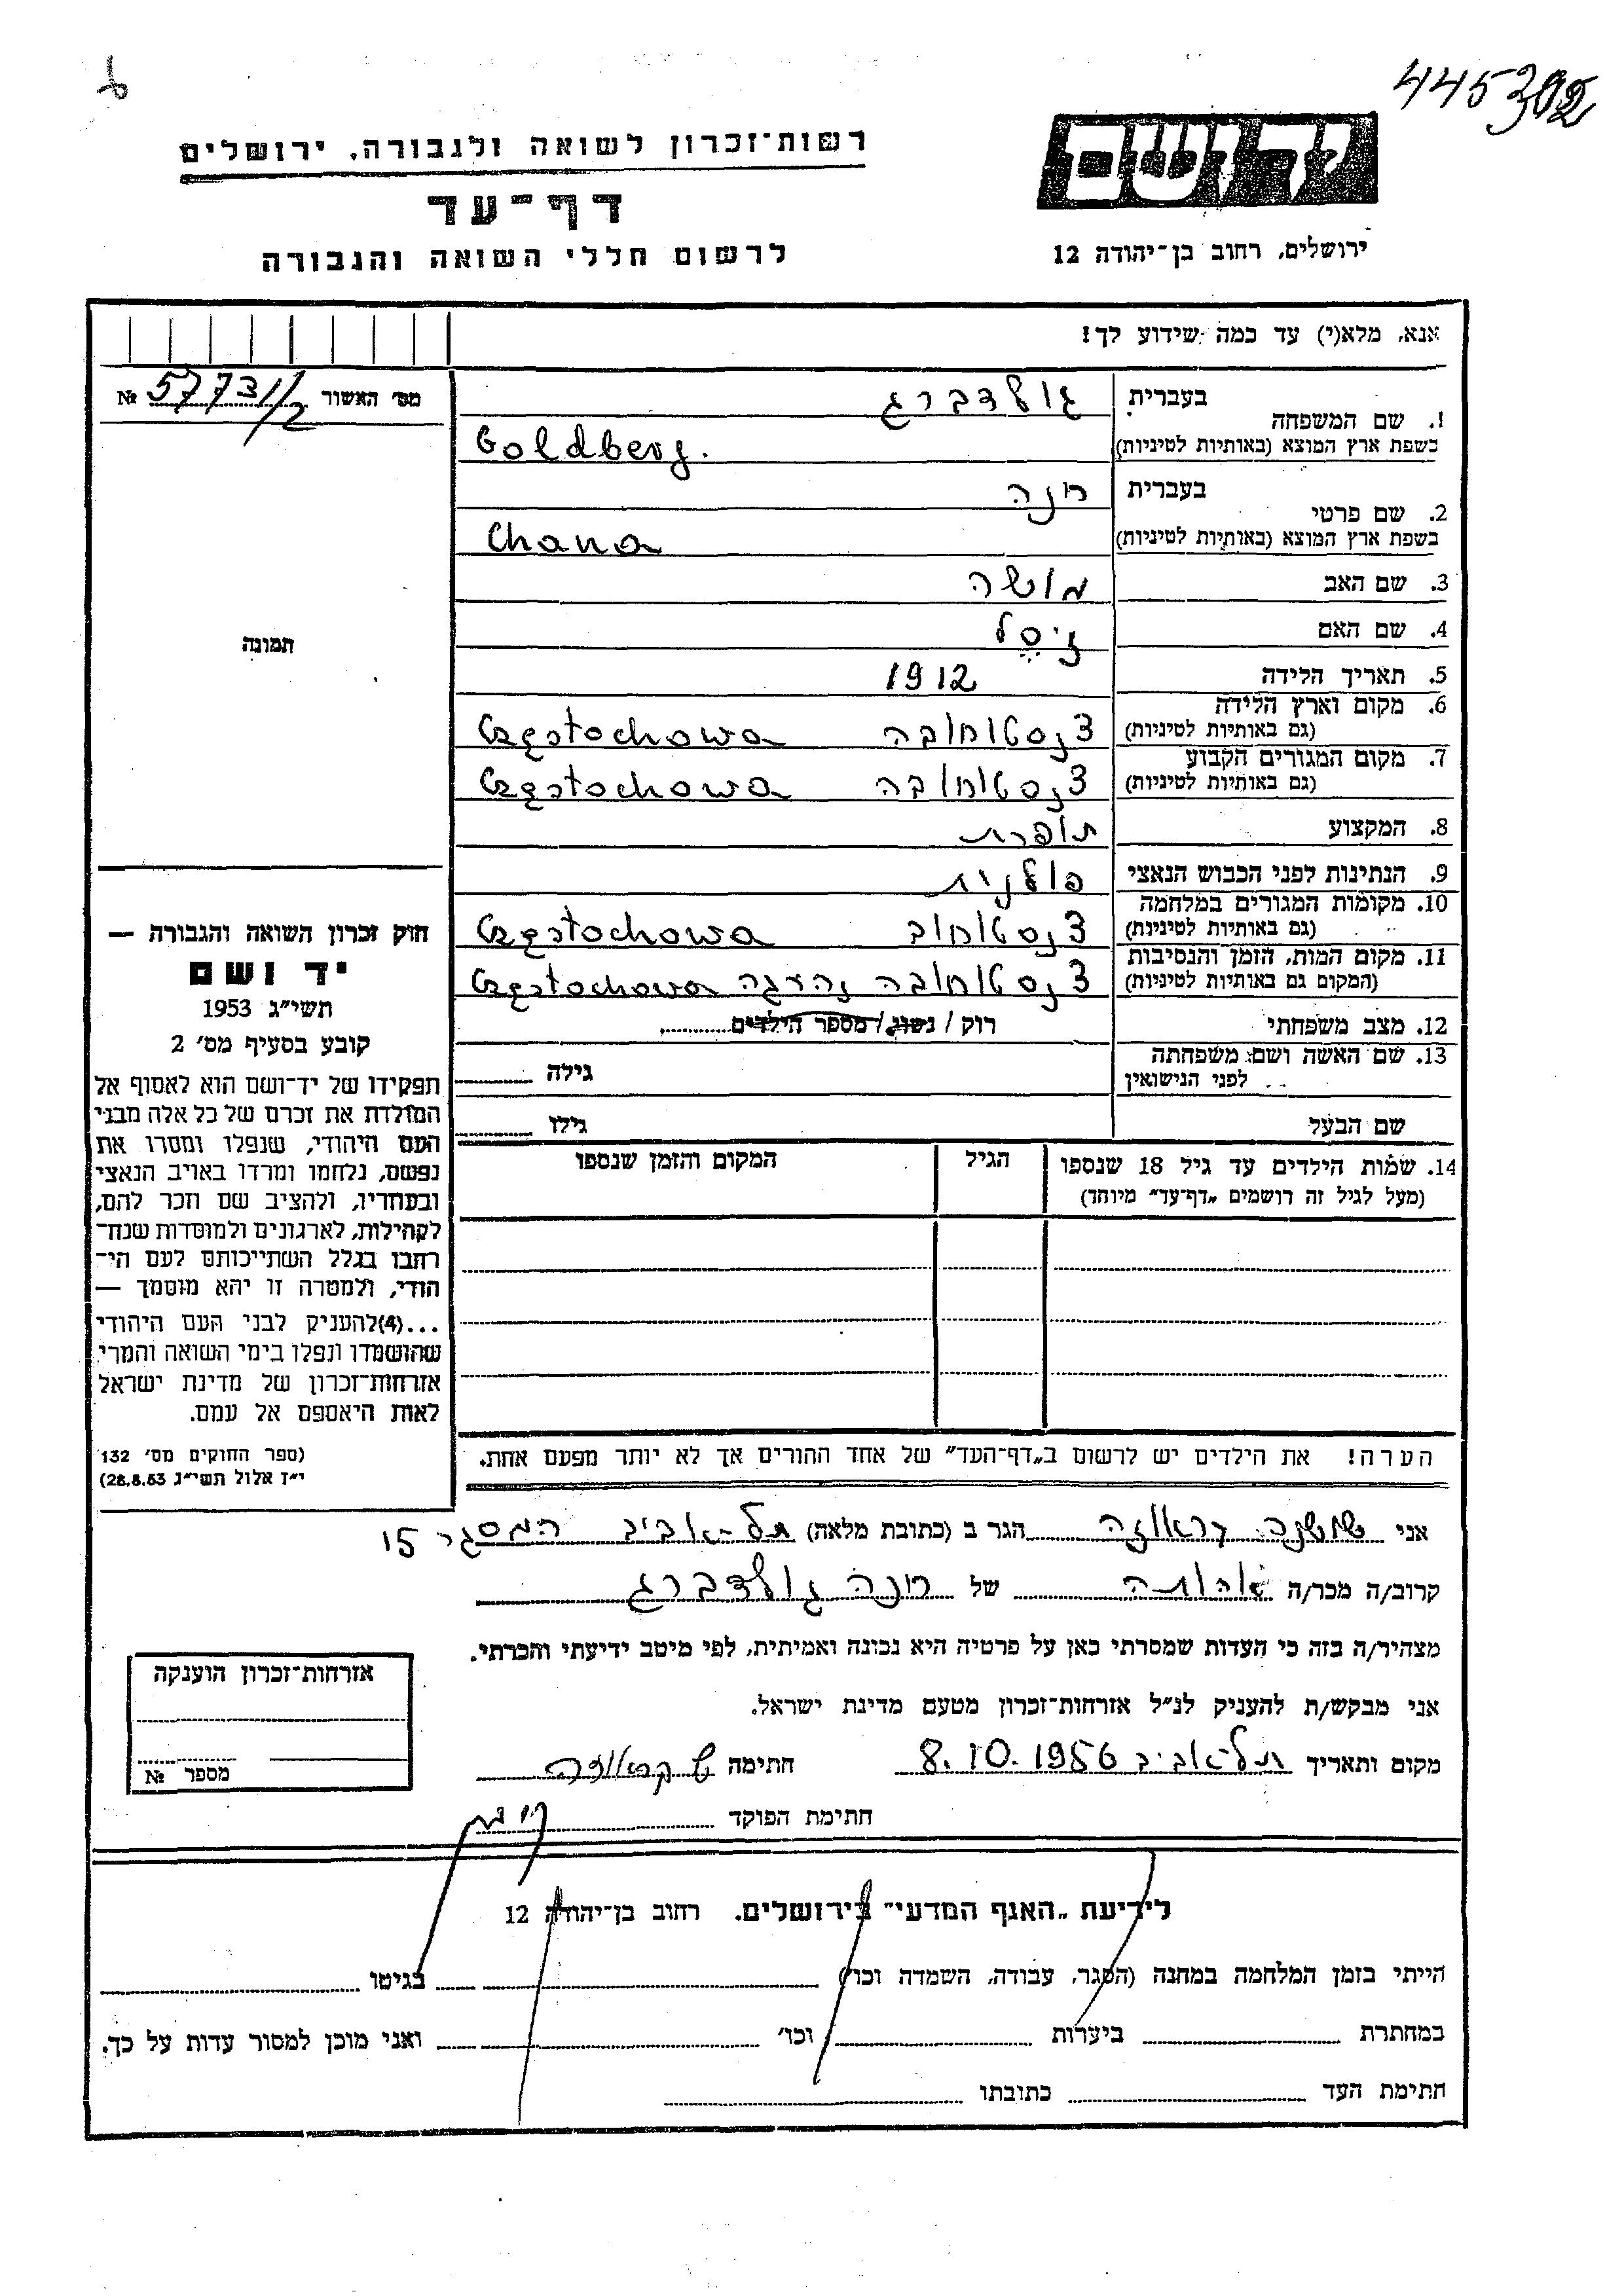 445302
רשות־זכרון לשואה ולגבורה, ירושלים
יד ושם
דף־עד
לרשום חללי השואה והגבורה
ירושלים, רחוב בן־יהודה 12
אנא, מלא(י) עד כמה שידוע לך!
מס׳ האשור 57731/2 №
1. שם המשפחה
בעברית גולדברג
בשפת ארץ המוצא (באותיות לטיניות) Goldberg.
2. שם פרטי
בעברית חנה
בשפת ארץ המוצא (באותיות לטיניות) Chana
3. שם האב משה
4. שם האם זיסל
5. תאריך הלידה 1912
6. מקום וארץ הלידה
(גם באותיות לטיניות) צנסטוחובה Częstochowa
7. מקום המגורים הקבוע
(גם באותיות לטיניות) צנסטוחובה Częstochowa
8. המקצוע תופרת
9. הנתינות לפני הכבוש הנאצי פולנית
10. מקומות המגורים במלחמה
(גם באותיות לטיניות) צנסטוחוב Częstochowa
11. מקום המות, הזמן והנסיבות
(המקום גם באותיות לטיניות) צנסטוחובה נהרגה Częstochowa
12. מצב משפחתי רוק / נשוי / מספר הילדים
13. שם האשה ושם משפחתה
לפני הנישואין גילה
שם הבעל גילו
14. שמות הילדים עד גיל 18 שנספו הגיל המקום והזמן שנספו
(מעל לגיל זה רושמים „דף־עד״ מיוחד)
תמונה
חוק זכרון השואה והגבורה —
יד ושם
תשי״ג 1953
קובע בסעיף מס׳ 2
תפקידו של יד־ושם הוא לאסוף אל
המולדת את זכרם של כל אלה מבני
העם היהודי, שנפלו ומסרו את
נפשם, נלחמו ומרדו באויב הנאצי
ובעוזריו, ולהציב שם וזכר להם,
לקהילות, לארגונים ולמוסדות שנח־
רבו בגלל השתייכותם לעם הי־
הודי, ולמטרה זו יהא מוסמך —
...(4)להעניק לבני העם היהודי
שהושמדו ונפלו בימי השואה והמרי
אזרחות־זכרון של מדינת ישראל
לאות היאספם אל עמם.
(ספר החוקים מס׳ 132
י״ז אלול תשי״ג 28.8.53)
הערה! את הילדים יש לרשום ב„דף־העד״ של אחד ההורים אך לא יותר מפעם אחת.
אני שושנה הגר ב (כתובת מלאה) תל־אביב המסגר 15
קרוב/ה מכר/ה אחותה של חנה גולדברג
מצהיר/ה בזה כי העדות שמסרתי כאן על פרטיה היא נכונה ואמיתית, לפי מיטב ידיעתי והכרתי.
אני מבקש/ת להעניק לנ״ל אזרחות־זכרון מטעם מדינת ישראל.
מקום ותאריך תל־אביב 8.10.1956 חתימה ש
חתימת הפוקד
אזרחות־זכרון הוענקה
מספר №
לידיעת „האגף המדעי״ בירושלים, רחוב בן־יהודה 12
הייתי בזמן המלחמה במחנה (הסגר, עבודה, השמדה וכו׳) בגיטו
במחתרת ביערות וכו׳ ואני מוכן למסור עדות על כך.
חתימת העד כתובתו